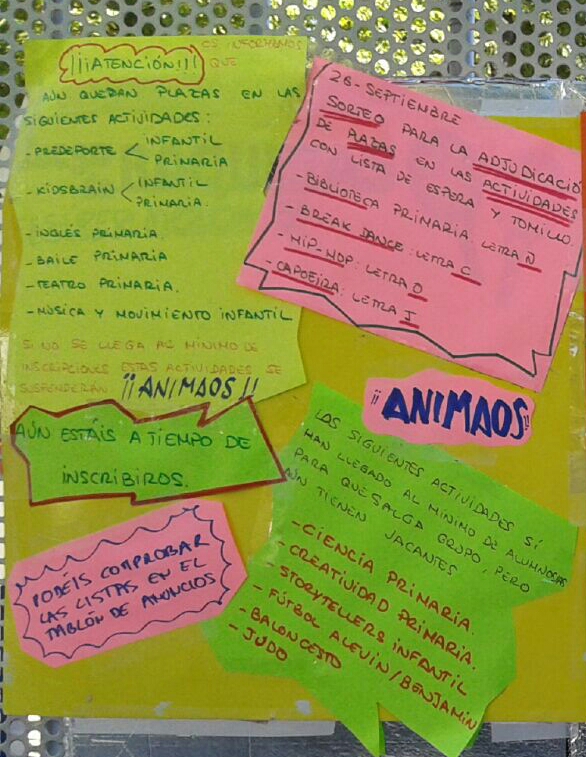 ¡¡¡ATENCIÓN!!! OS INFORMAMOS
QUE
AÚN QUEDAN PLAZAS EN LAS
SIGUIENTES ACTIVIDADES:
- PREDEPORTE < INFANTIL
PRIMARIA
- KIDSBRAIN < INFANTIL
PRIMARIA.
- INGLÉS PRIMARIA.
- BAILE PRIMARIA
- TEATRO PRIMARIA.
- MÚSICA Y MOVIMIENTO INFANTIL
SI NO SE LLEGA AL MÍNIMO DE
INSCRIPCIONES ESTAS ACTIVIDADES SE
SUSPENDERÁN ¡¡ANIMAOS!!
AÚN ESTÁIS A TIEMPO DE
INSCRIBIROS.
PODÉIS COMPROBAR
LAS LISTAS EN EL
TABLÓN DE ANUNCIOS
28-SEPTIEMBRE
SORTEO PARA LA ADJUDICACIÓ
DE PLAZAS EN LAS ACTIVIDADES
CON LISTA DE ESPERA Y TOMILLO.
- BIBLIOTECA PRIMARIA: LETRA N
- BREAK DANCE: LETRA C
- HIP-HOP: LETRA O
- CAPOEIRA: LETRA I
¡¡ANIMAOS!!
LAS SIGUIENTES ACTIVIDADES SÍ
HAN LLEGADO AL MÍNIMO DE ALUMNOS/AS
PARA QUE SALGA GRUPO, PERO
AÚN TIENEN VACANTES
- CIENCIA PRIMARIA.
- CREATIVIDAD PRIMARIA.
- STORYTELLERS INFANTIL
- FÚTBOL ALEVÍN/BENJAMÍN
- BALONCESTO
- JUDO